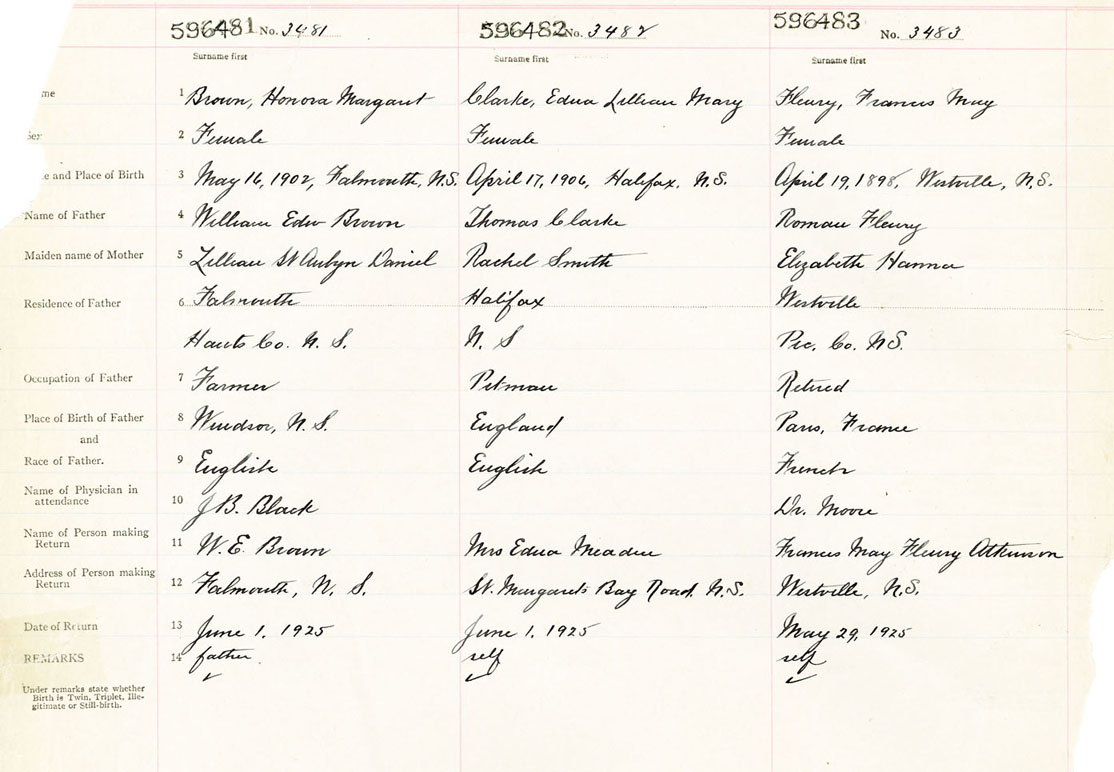 596481 No. 3481 596482 No. 3482 596483 No. 3483
Surname first Surname first Surname first
me 1 Brown, Honora Margaret Clarke, Edna Lillian Mary Fleury, Francis May
Sex 2 Female Female Female
e and Place of Birth 3 May 16, 1902, Falmouth, N.S. April 17, 1906, Halifax, N.S. April 19, 1898, Westville, N.S.
Name of Father 4 William Edw Brown Thomas Clarke Roman Fleury
Maiden name of Mother 5 Lillian St Aubyn Daniel Rachel Smith Elizabeth Hanna
Residence of Father 6 Falmouth Halifax Westville
Hants Co. N. S. N. S Pic. Co. N.S.
Occupation of Father 7 Farmer Pitman Retired
Place of Birth of Father 8 Windsor, N.S. England Paris, France
and
Race of Father. 9 English English French
Name of Physician in
attendance 10 J B. Black Dr. Moore
Name of Person making
Return 11 W. E. Brown Mrs Edna Meadee Francis May Fleury Atkinson
Address of Person making
Return 12 Falmouth, N. S. St. Margarets Bay Road, N.S. Westville, N.S.
Date of Return 13 June 1, 1925 June 1, 1925 May 29, 1925
REMARKS 14 father self self
Under remarks state whether
Birth is Twin, Triplet, Ille-
gitimate or Still-birth.